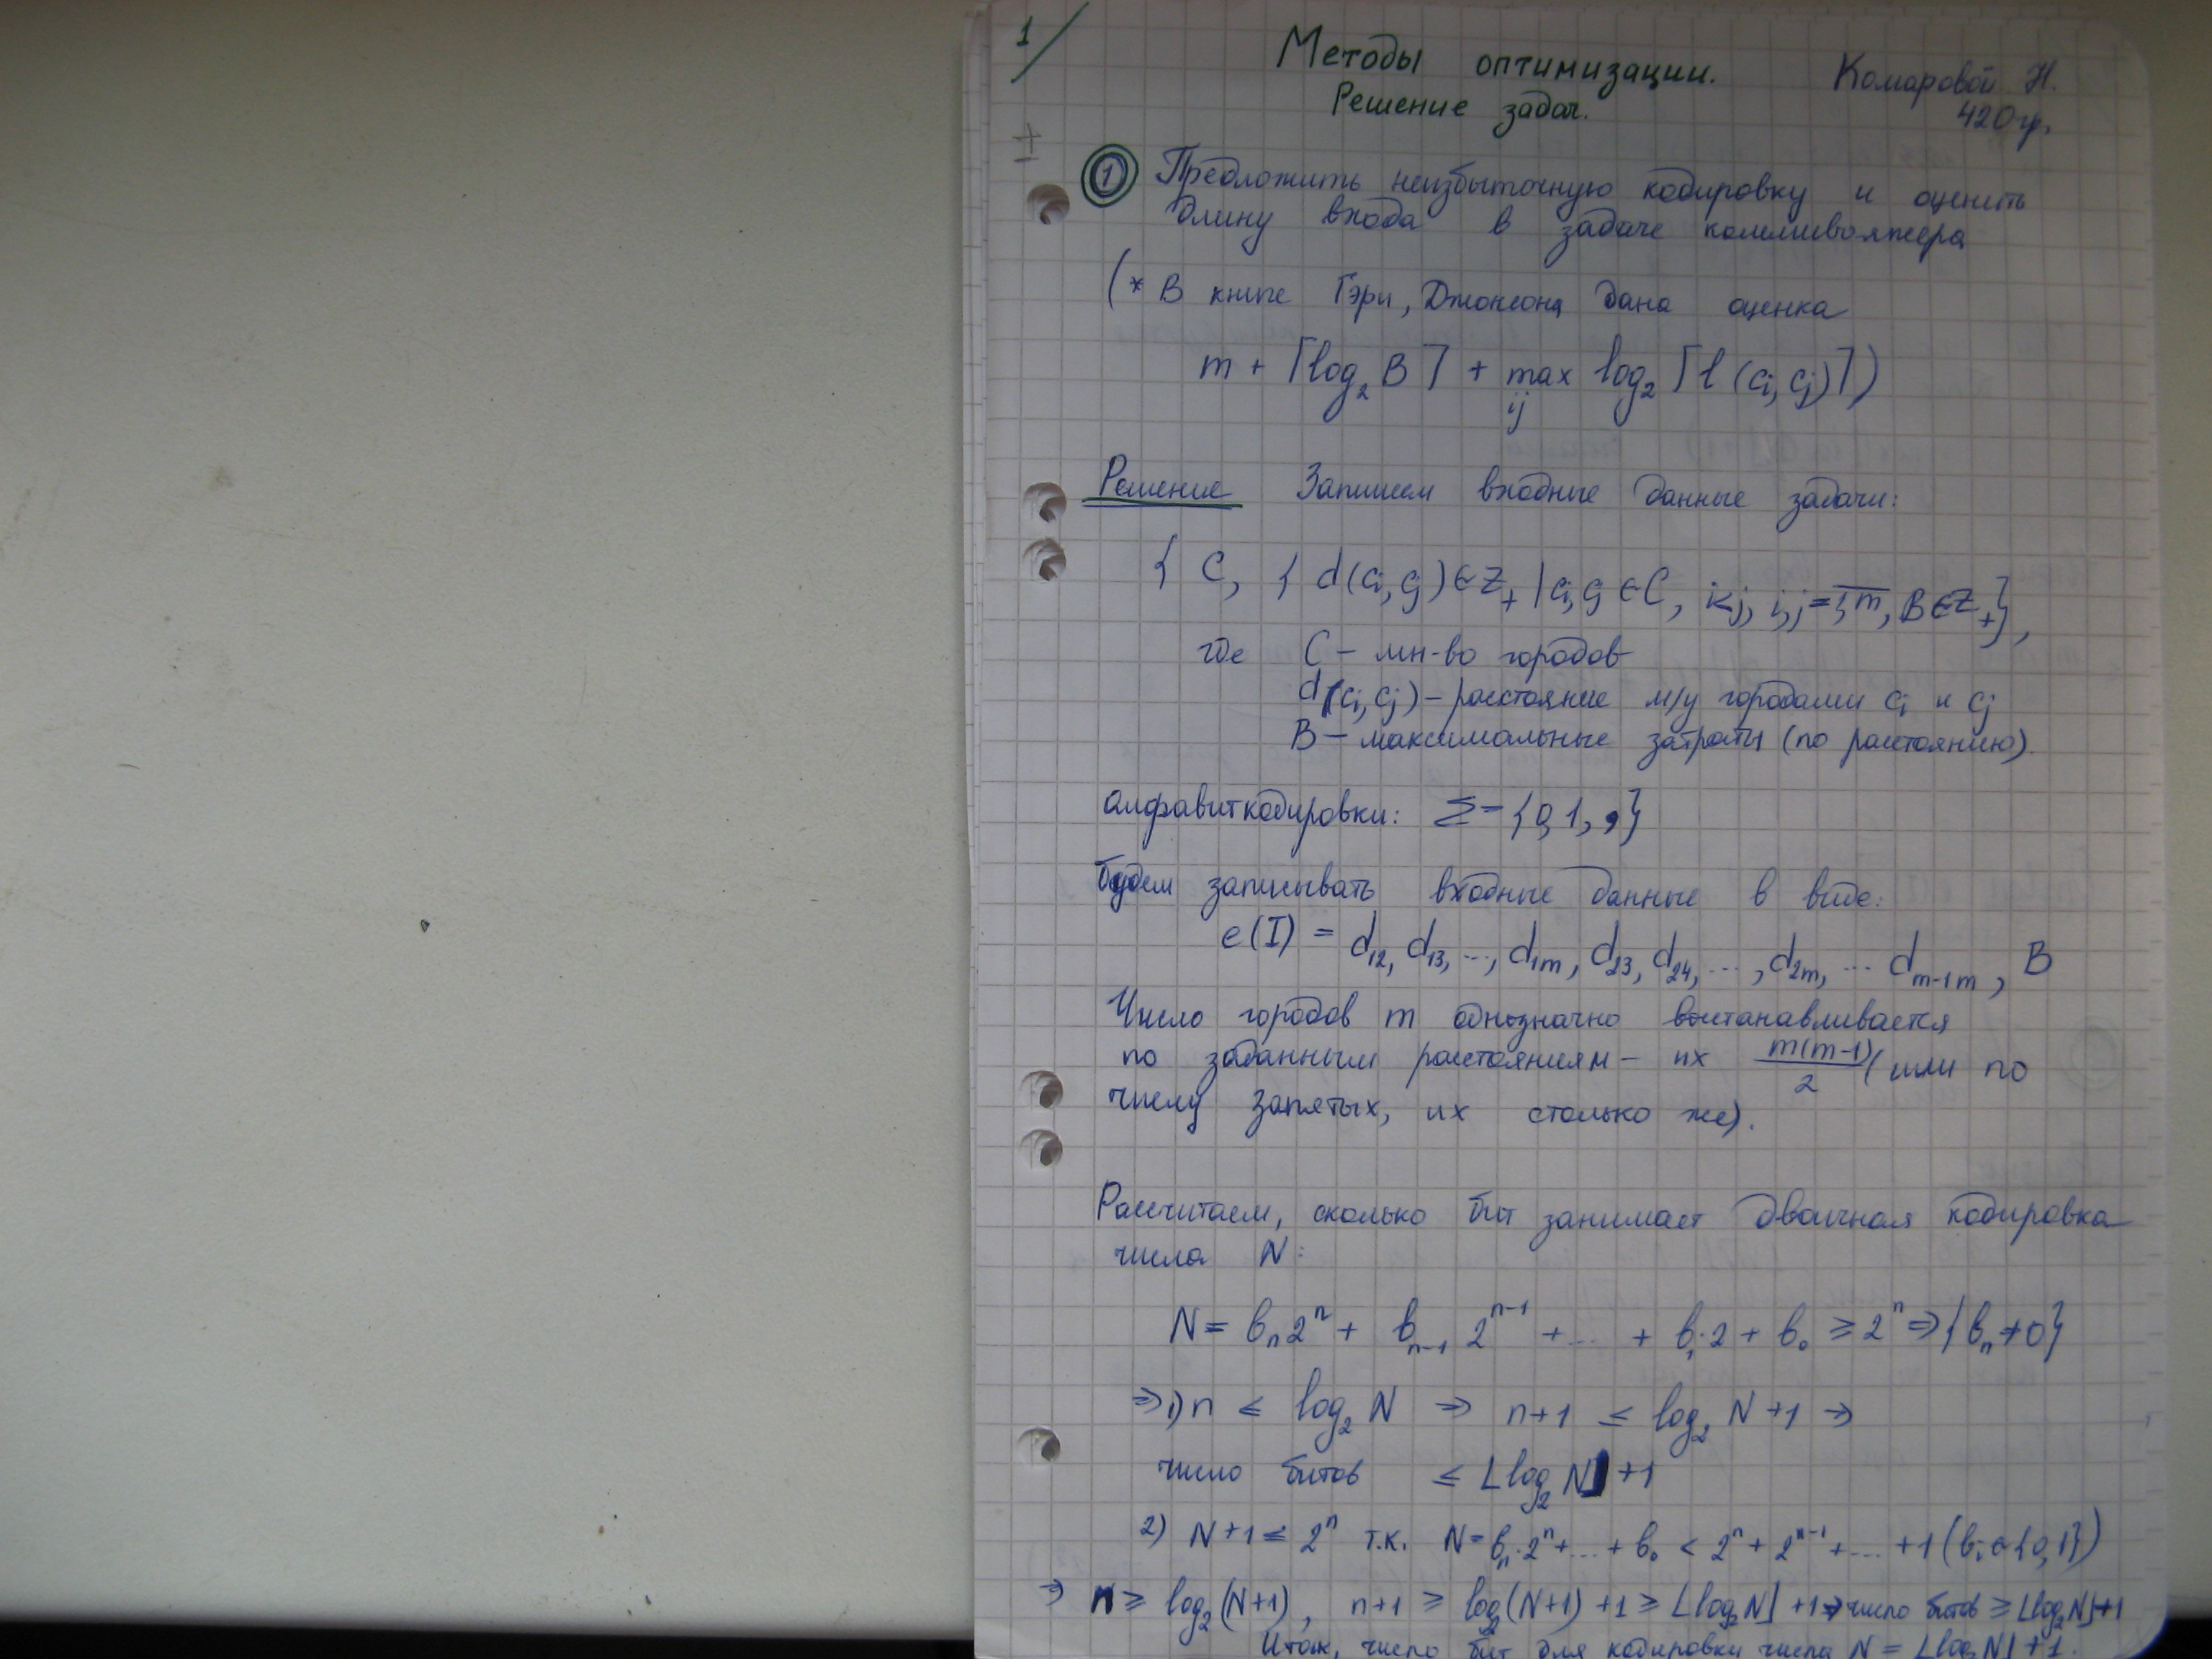 1/
Методы оптимизации.
Комаровой Н.
Решение задач.
420гр.
±
① Предложить неизбыточную кодировку и оценить
длину входа в задаче коммивояжера
(* В книге Гэри, Джонсона дана оценка
m + ⌈log₂ B⌉ + max log₂ ⌈l (ci, cj)⌉)
ij
Решение Запишем входные данные задачи:
{ C, { d(ci, cj) ∈ Z₊ | ci, cj ∈ C, i<j, i,j = 1,m, B ∈ Z₊},
где C – мн-во городов
d(ci, cj) – расстояние м/у городами ci и cj
B – максимальные затраты (по расстоянию).
алфавит кодировки: Σ = {0,1, ,}
Будем записывать входные данные в виде:
e(I) = d₁₂, d₁₃, ..., d₁ₘ, d₂₃, d₂₄, ..., d₂ₘ, ... dₘ₋₁ₘ, B
Число городов m однозначно востанавливается
по заданным расстояниям – их m(m-1)/2 (или по
числу запятых, их столько же).
Рассчитаем, сколько бит занимает двоичная кодировка
числа N:
N = bₙ2ⁿ + bₙ₋₁ 2ⁿ⁻¹ + ... + b₁·2 + b₀ ≥ 2ⁿ ⇒ {bₙ ≠ 0}
⇒ 1) n ≤ log₂ N ⇒ n+1 ≤ log₂ N + 1 ⇒
число битов ≤ ⌊log₂ N⌋ + 1
2) N+1 ≤ 2ⁿ т.к. N = bₙ·2ⁿ + ... + b₀ < 2ⁿ + 2ⁿ⁻¹ + ... + 1 (bᵢ ∈ {0,1})
⇒ n ≥ log₂(N+1), n+1 ≥ log₂(N+1) + 1 ≥ ⌊log₂N⌋ + 1 ⇒ число битов ≥ ⌊log₂N⌋+1
Итак, число бит для кодировки числа N = ⌊log₂N⌋ + 1.